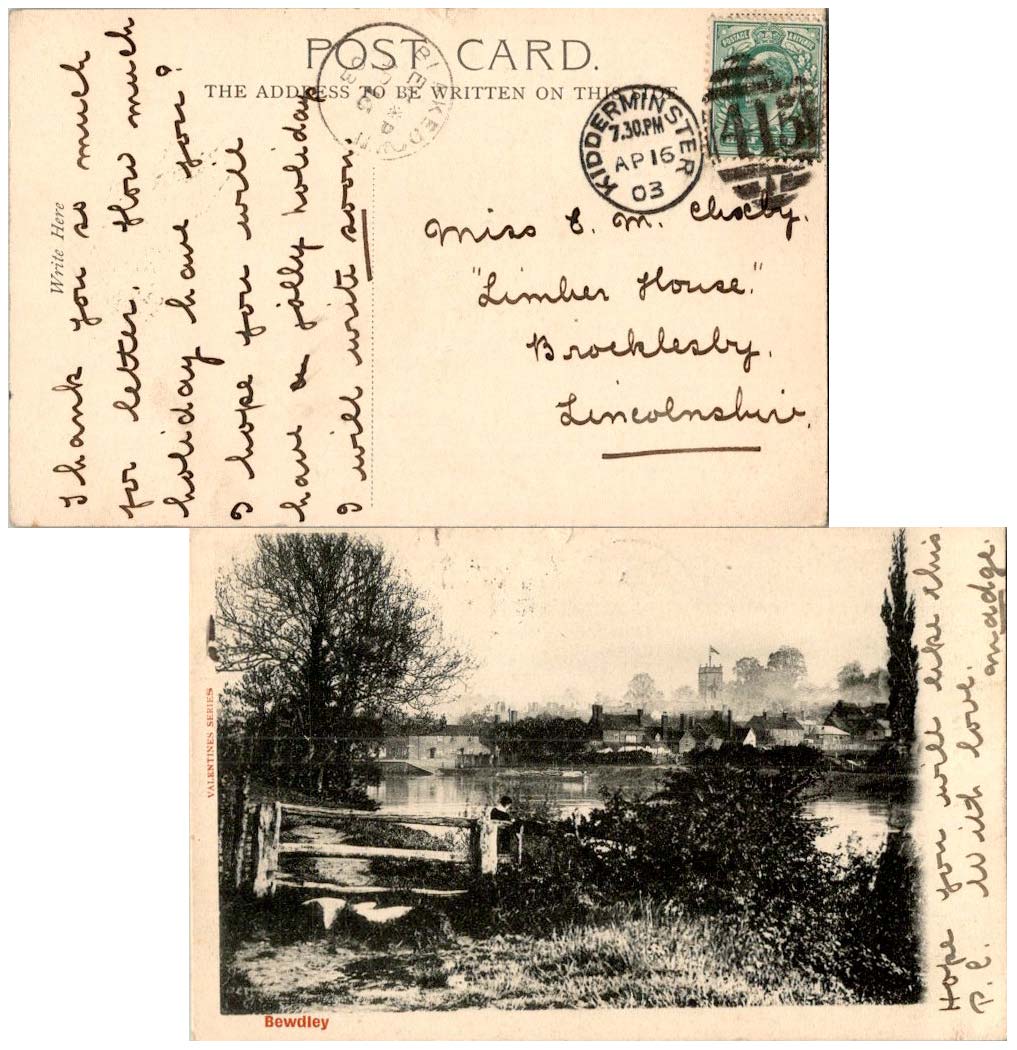 POST CARD.
THE ADDRESS TO BE WRITTEN ON THIS SIDE
Write Here
Thank you so much
for letter. How much
holiday have you?
I hope you will
have a jolly holiday
I will write soon.
KIDDERMINSTER
7.30.PM
AP 16
03
POSTAGE
415
Miss C. M.
"Limber House."
Brocklesby.
Lincolnshire.
VALENTINES SERIES
Bewdley
Hope you will like this
P.C. With love.
Madge.